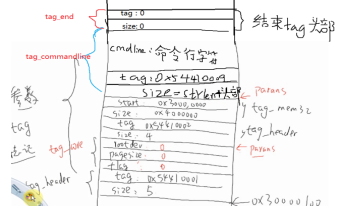 tag_end
tag: 0
size: 0
结束tag头部
tag_commandline
cmdline: 命令行字符
tag: 0x54410009
size = strlen+头部
params
start 0x30000000
size: 0x4000000
tag_mem32
tag 0x54410002
tag_header
size: 4
参数
tag
rootdev 0
params
pagesize: 0
flag 0
tag_core
tag: 0x54410001
tag_header
size: 5
0x30000100